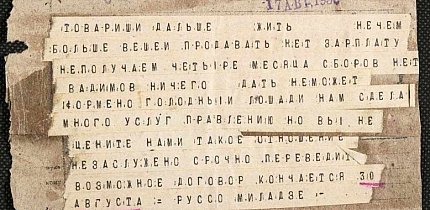 17 АВГ. 193
ТОВАРИЩИ ДАЛЬШЕ ЖИТЬ НЕЧЕМ
БОЛЬШЕ ВЕЩЕЙ ПРОДАВАТЬ НЕТ ЗАРПЛАТУ
НЕПОЛУЧАЕМ ЧЕТЫРЕ МЕСЯЦА СБОРОВ НЕТ
ВАДИМОВ НИЧЕГО ДАТЬ НЕМОЖЕТ
ФОРМЕНО ГОЛОДНЫЙ ЛОШАДИ НАМ СДЕЛА
МНОГО УСЛУГ ПРАВЛЕНИЮ НО ВЫ НЕ
ЦЕНИТЕ НАМИ ТАКОЕ ОТНОШЕНИЕ
НЕЗАСЛУЖЕНО СРОЧНО ПЕРЕВЕДИТ
ВОЗМОЖНОЕ ДОГОВОР КОНЧАЕТСЯ 30
АВГУСТА = РУССО МИЛАДЗЕ -